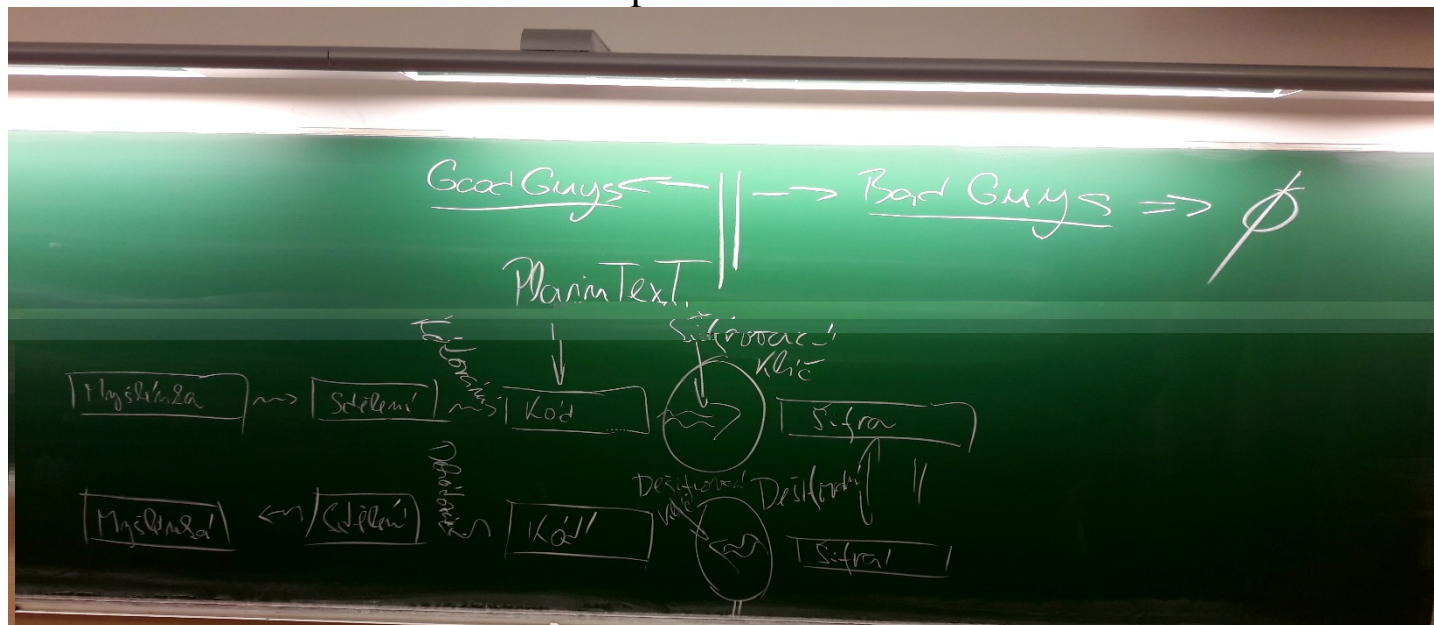 Good Guys <- || -> Bad Guys => ϕ
Plain Text
Kódování
Šifrovací
Klíč
Myšlenka -> Sdělení -> Kód -> Šifra
Dekódování
Dešifrovací
klíč
Dešifrování
Myšlenka <- Sdělení Kód' Šifra'